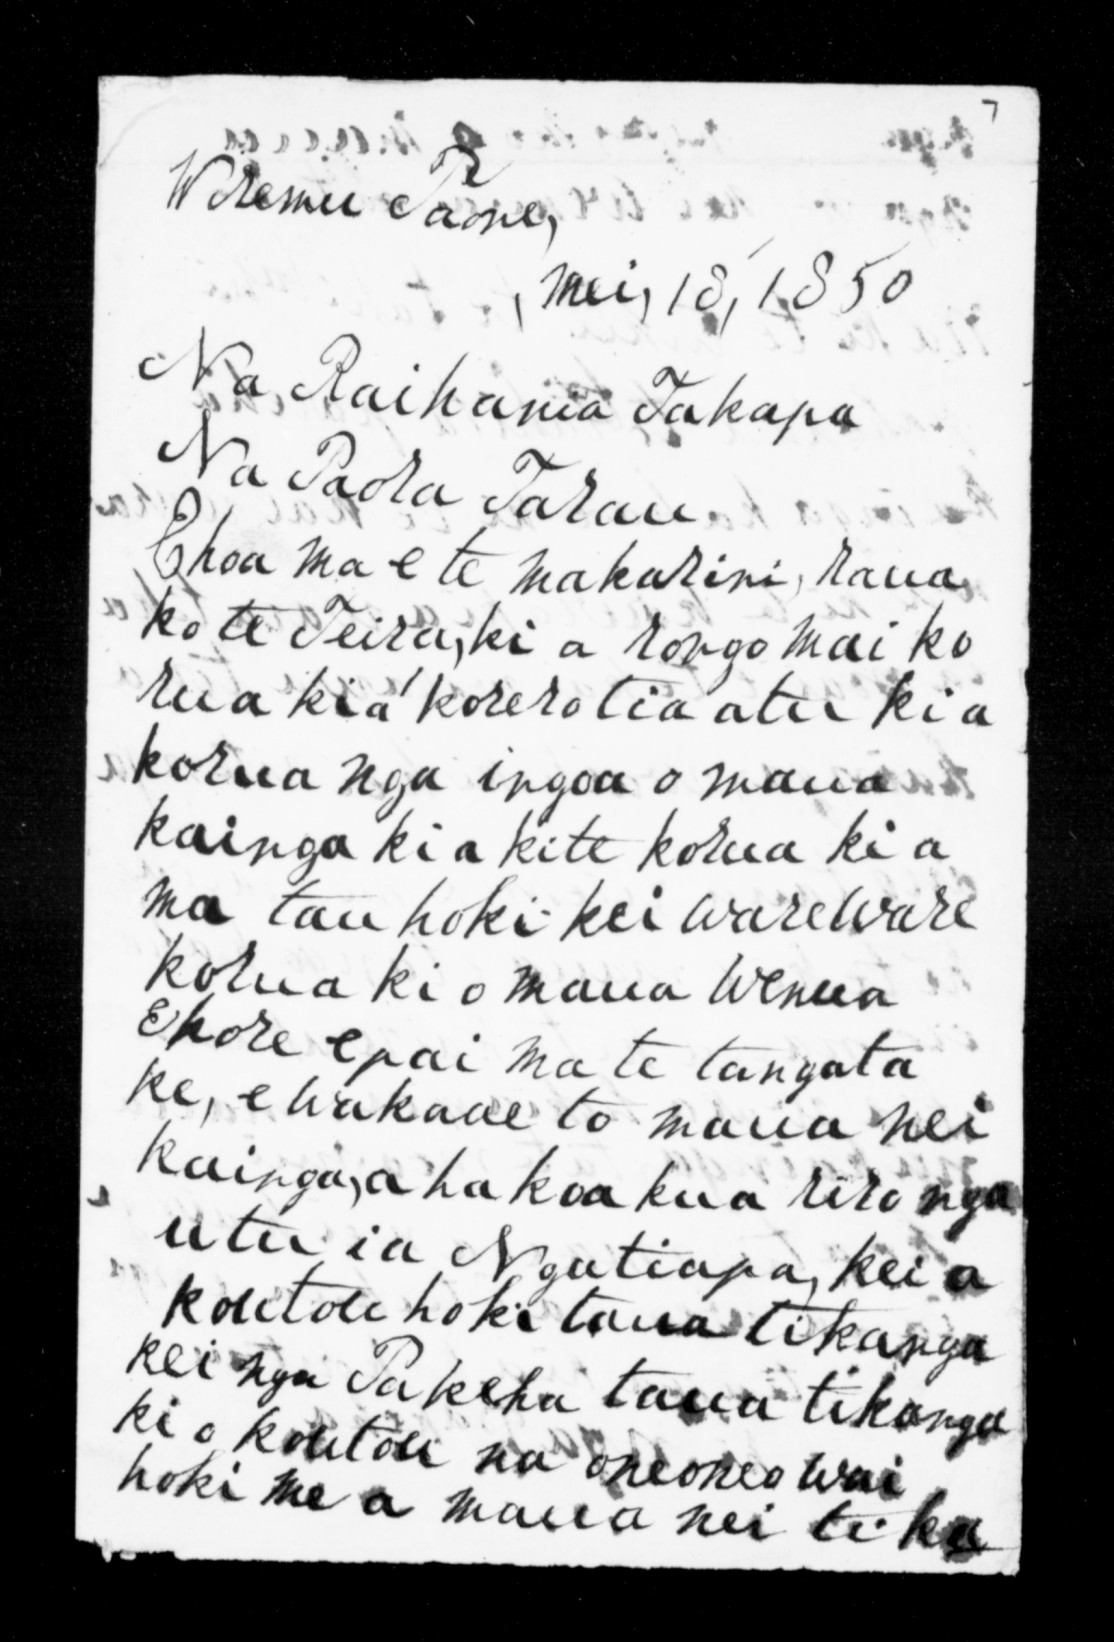 7
Wiremu Taone,
, mei, 18, 1850
Na Raihania Takapa
Na Paora Tarau
Ehoa ma e te makarini, raua
ko te Teira, ki a rongo mai ko
rua kia korero tia atu ki a
korua nga ingoa o maua
kainga ki a kite korua ki a
ma tau hoki kei wareware
korua ki o maua wenua
Ekore e pai ma te tangata
ke, e wakaae to maua nei
kainga, a ha koa kua riro nga
utu ia Ngatiapa, kei a
koutou hoki taua tikanga
kei nga Pakeha taua tikanga
ki o koutou na oneoneo wai
hoki me a maua nei tika